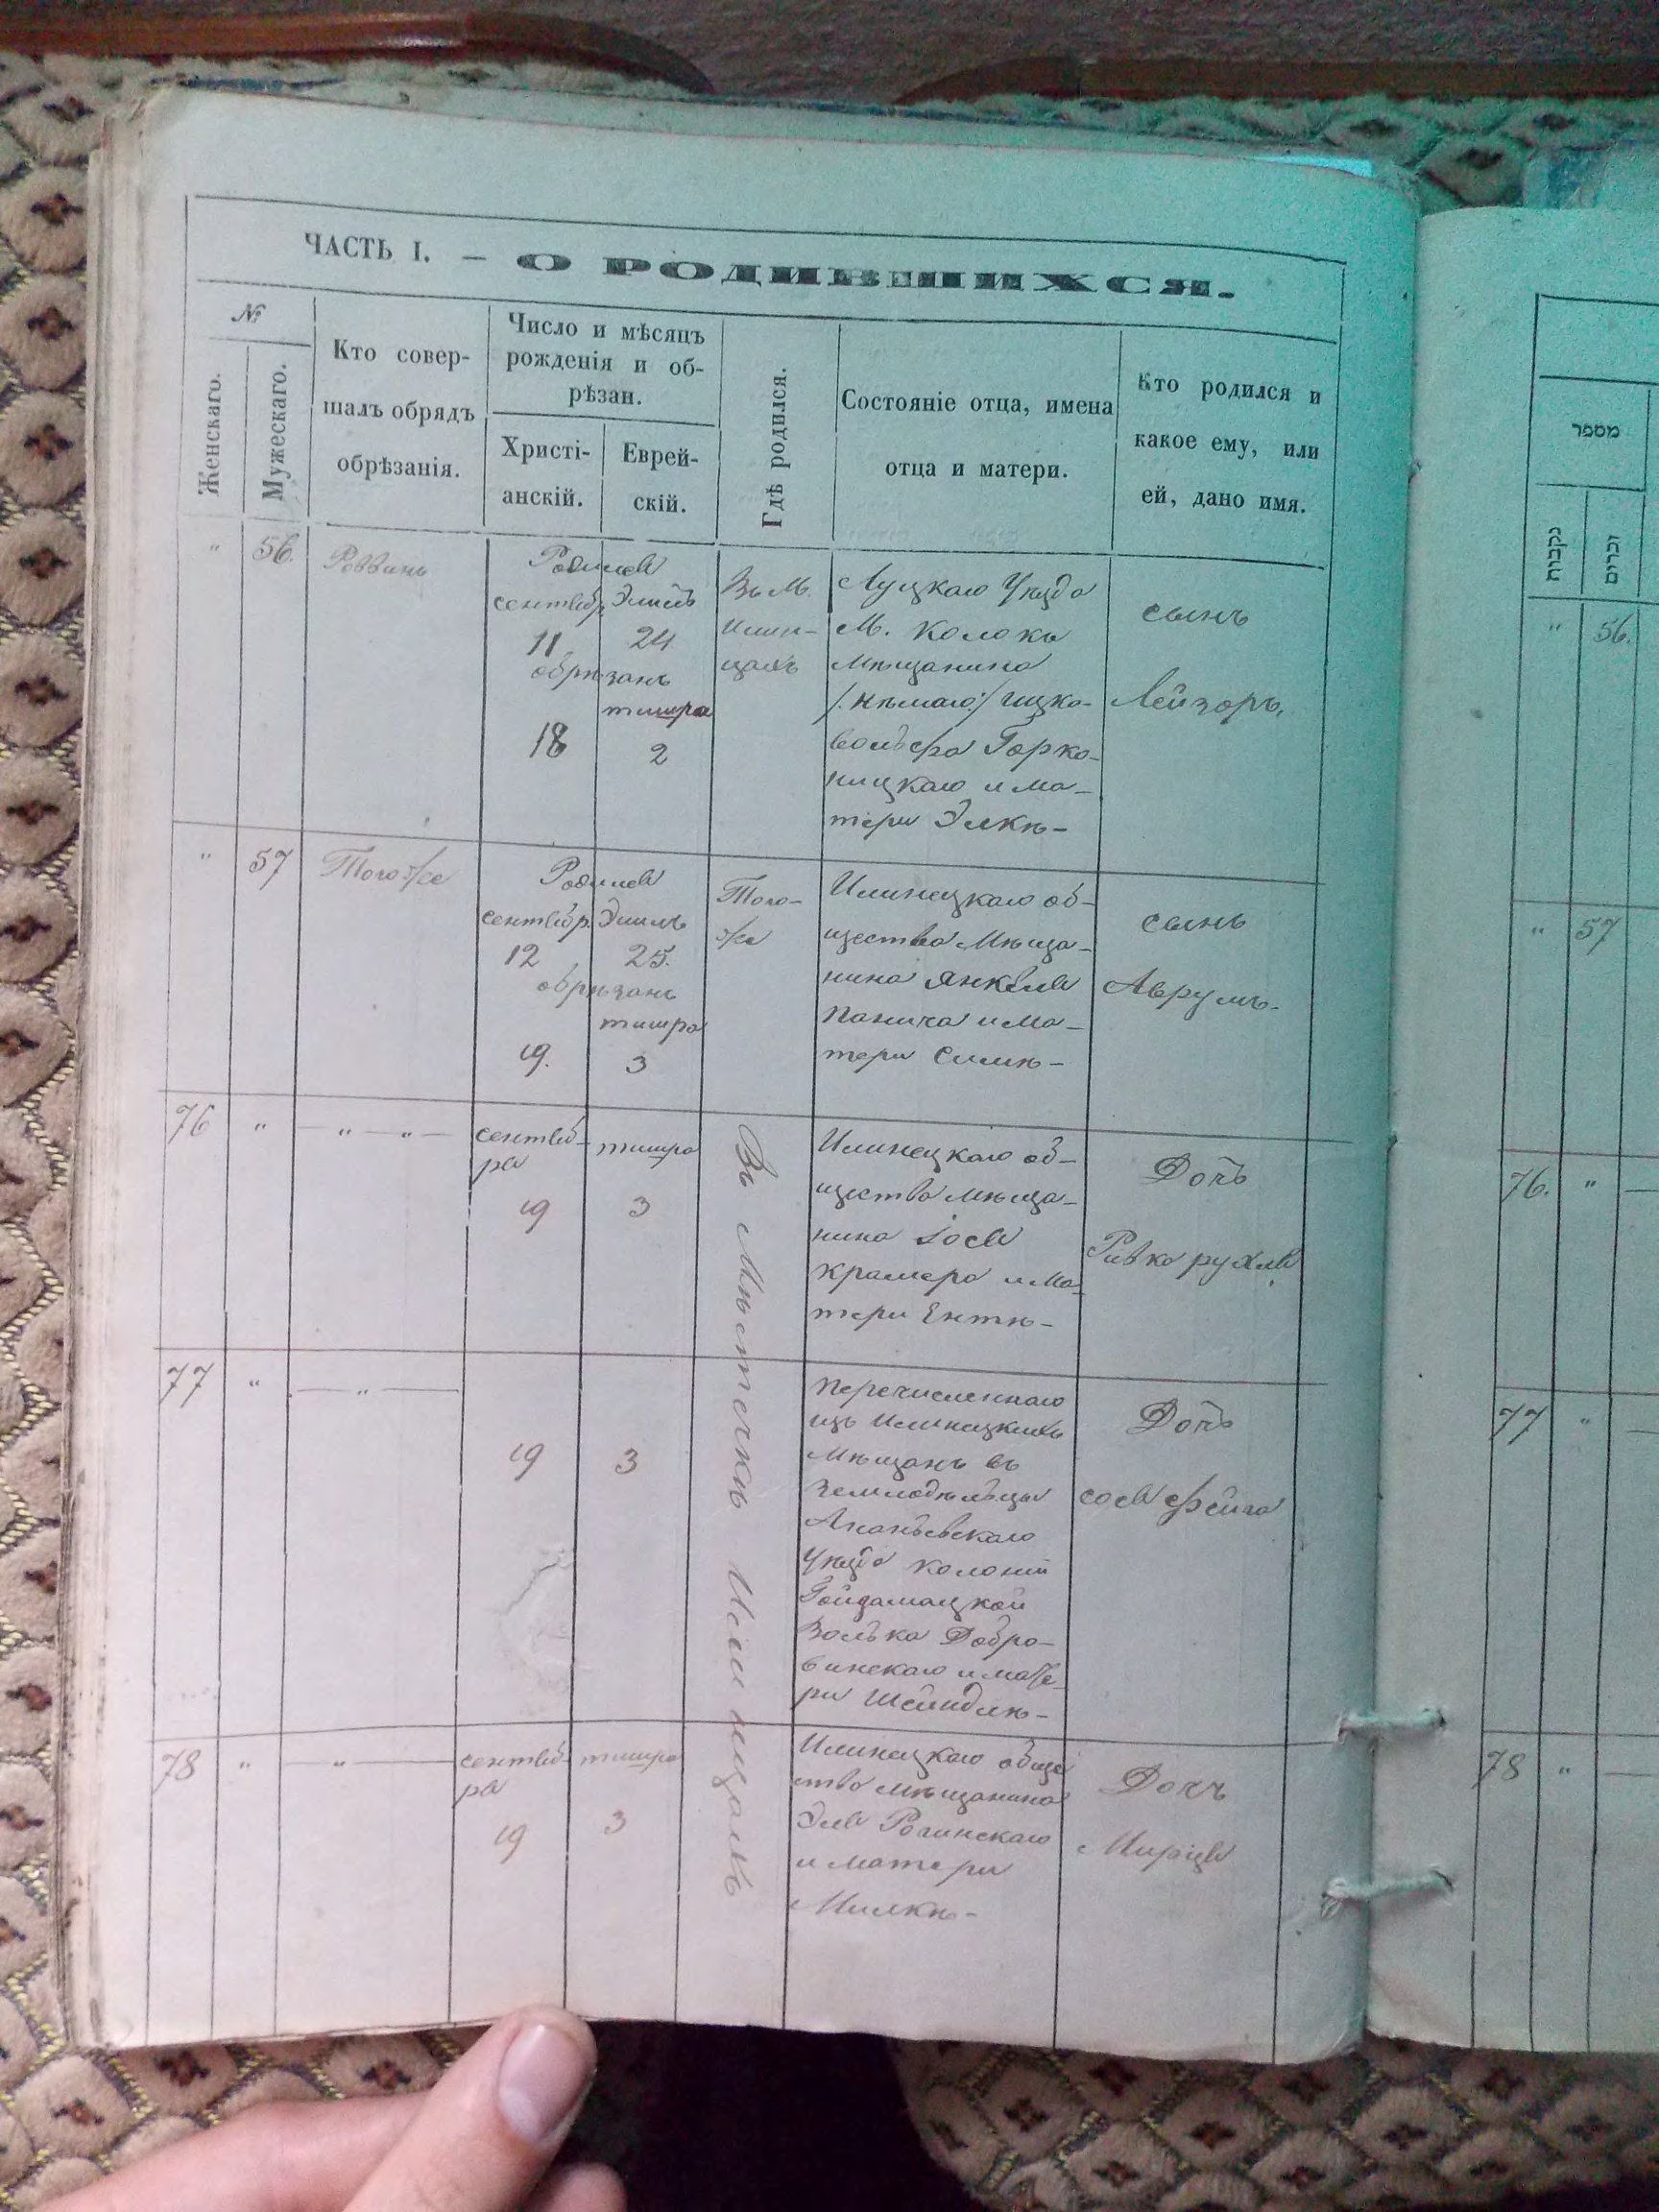 ЧАСТЬ I. — О РОДИВШИХСЯ.
№
Женскаго.
Мужескаго.
Кто совер-
шалъ обрядъ
обрѣзанія.
Число и мѣсяцъ
рожденія и об-
рѣзан.
Христі-
анскій.
Еврей-
скій.
Гдѣ родился.
Состояніе отца, имена
отца и матери.
Кто родился и
какое ему, или
ей, дано имя.
" 56.
Раввинъ
Родился
сентябр. Элюль
11 24
обрѣзанъ
тишра
18 2
Въ М.
Илин-
цахъ
Луцкаго Уѣзда
М. Колокъ
Мѣщанина
/:нѣмаго:/ Ицко-
вольфа
ницкаго и ма-
тери Элкѣ-
сынъ
Лейзоръ.
" 57
Того же
Родился
сентябр. Элюль
12 25.
обрѣзанъ
тишра
19. 3
Того-
же
Илинецкаго об-
щества Мѣща-
нина Янкеля
Панича и ма-
тери Симѣ-
сынъ
Аврумъ.
76 " — " — " —
сентяб-
ря
тишра
19 3
Въ Мѣстечкѣ Илинцахъ
Илинецкаго об-
щества мѣща-
нина Іося
Крамера и ма-
тери Ентѣ-
Дочь
Ривка рухля
77 " — " —
19 3
перечисленнаго
изъ Илинецкихъ
Мѣщанъ въ
земледѣльцы
Ананьевскаго
Уѣзда колоніи
Гойдамацкой
Волька Добро-
винскаго и мате-
ри Шейндлѣ-
Дочь
сося фейга
78 " — " —
сентяб-
ря
тишра
19 3
Илинецкаго обще
ства мѣщанина
Эля Рогинскаго
и матери
Милкѣ-
Дочь
Мирця
מספר
נקבות
זכרים
" 56.
" 57
76. " —
77 " —
78 " —